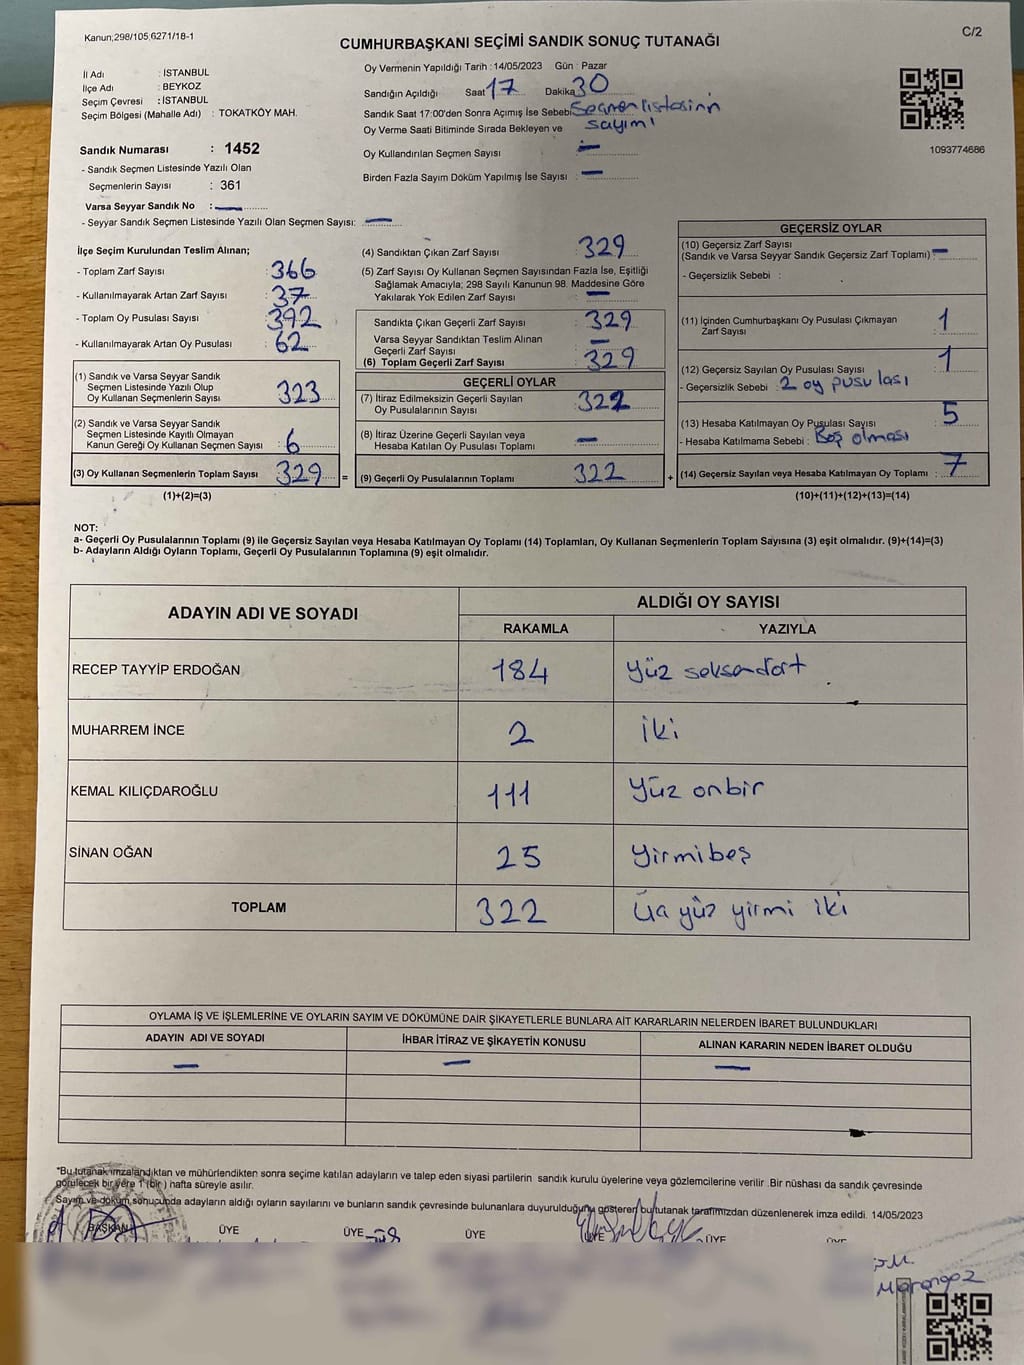 Kanun;298/105,6271/18-1
C/2
CUMHURBAŞKANI SEÇİMİ SANDIK SONUÇ TUTANAĞI
İl Adı : İSTANBUL
İlçe Adı : BEYKOZ
Seçim Çevresi : İSTANBUL
Seçim Bölgesi (Mahalle Adı) : TOKATKÖY MAH.
Oy Vermenin Yapıldığı Tarih : 14/05/2023 Gün : Pazar
Sandığın Açıldığı Saat 17 Dakika 30
Sandık Saat 17:00'den Sonra Açımış İse Sebebi Seçmen listesinin
Oy Verme Saati Bitiminde Sırada Bekleyen ve sayımı
Oy Kullandırılan Seçmen Sayısı —
Birden Fazla Sayım Döküm Yapılmış İse Sayısı : —
1093774686
Sandık Numarası : 1452
- Sandık Seçmen Listesinde Yazılı Olan
Seçmenlerin Sayısı : 361
Varsa Seyyar Sandık No : —
- Seyyar Sandık Seçmen Listesinde Yazılı Olan Seçmen Sayısı: —
İlçe Seçim Kurulundan Teslim Alınan;
- Toplam Zarf Sayısı : 366
- Kullanılmayarak Artan Zarf Sayısı : 37
- Toplam Oy Pusulası Sayısı : 392
- Kullanılmayarak Artan Oy Pusulası : 62
(1) Sandık ve Varsa Seyyar Sandık
Seçmen Listesinde Yazılı Olup
Oy Kullanan Seçmenlerin Sayısı : 323
(2) Sandık ve Varsa Seyyar Sandık
Seçmen Listesinde Kayıtlı Olmayan
Kanun Gereği Oy Kullanan Seçmen Sayısı : 6
(3) Oy Kullanan Seçmenlerin Toplam Sayısı : 329 =
(1)+(2)=(3)
(4) Sandıktan Çıkan Zarf Sayısı : 329
(5) Zarf Sayısı Oy Kullanan Seçmen Sayısından Fazla İse, Eşitliği
Sağlamak Amacıyla; 298 Sayılı Kanunun 98. Maddesine Göre
Yakılarak Yok Edilen Zarf Sayısı : —
Sandıkta Çıkan Geçerli Zarf Sayısı : 329
Varsa Seyyar Sandıktan Teslim Alınan
Geçerli Zarf Sayısı : —
(6) Toplam Geçerli Zarf Sayısı : 329
GEÇERLİ OYLAR
(7) İtiraz Edilmeksizin Geçerli Sayılan
Oy Pusulalarının Sayısı : 322
(8) İtiraz Üzerine Geçerli Sayılan veya
Hesaba Katılan Oy Pusulası Toplamı : —
(9) Geçerli Oy Pusulalarının Toplamı : 322 +
GEÇERSİZ OYLAR
(10) Geçersiz Zarf Sayısı
(Sandık ve Varsa Seyyar Sandık Geçersiz Zarf Toplamı) : —
- Geçersizlik Sebebi :
(11) İçinden Cumhurbaşkanı Oy Pusulası Çıkmayan
Zarf Sayısı : 1
(12) Geçersiz Sayılan Oy Pusulası Sayısı : 1
- Geçersizlik Sebebi : 2 oy pusulası
(13) Hesaba Katılmayan Oy Pusulası Sayısı : 5
- Hesaba Katılmama Sebebi : Boş olması
(14) Geçersiz Sayılan veya Hesaba Katılmayan Oy Toplamı : 7
(10)+(11)+(12)+(13)=(14)
NOT:
a- Geçerli Oy Pusulalarının Toplamı (9) ile Geçersiz Sayılan veya Hesaba Katılmayan Oy Toplamı (14) Toplamları, Oy Kullanan Seçmenlerin Toplam Sayısına (3) eşit olmalıdır. (9)+(14)=(3)
b- Adayların Aldığı Oyların Toplamı, Geçerli Oy Pusulalarının Toplamına (9) eşit olmalıdır.
ADAYIN ADI VE SOYADI ALDIĞI OY SAYISI
RAKAMLA YAZIYLA
RECEP TAYYİP ERDOĞAN 184 Yüz seksendört
MUHARREM İNCE 2 iki
KEMAL KILIÇDAROĞLU 111 Yüz onbir
SİNAN OĞAN 25 Yirmibeş
TOPLAM 322 Üç yüz yirmi iki
OYLAMA İŞ VE İŞLEMLERİNE VE OYLARIN SAYIM VE DÖKÜMÜNE DAİR ŞİKAYETLERLE BUNLARA AİT KARARLARIN NELERDEN İBARET BULUNDUKLARI
ADAYIN ADI VE SOYADI İHBAR İTİRAZ VE ŞİKAYETİN KONUSU ALINAN KARARIN NEDEN İBARET OLDUĞU
— — —
*Bu tutanak imzalandıktan ve mühürlendikten sonra seçime katılan adayların ve talep eden siyasi partilerin sandık kurulu üyelerine veya gözlemcilerine verilir. Bir nüshası da sandık çevresinde
görülecek bir yere 1 (bir) hafta süreyle asılır.
Sayım ve döküm sonucunda adayların aldığı oyların sayılarını ve bunların sandık çevresinde bulunanlara duyurulduğunu gösteren bu tutanak tarafımızdan düzenlenerek imza edildi. 14/05/2023
BAŞKAN ÜYE ÜYE ÜYE ÜYE ÜYE ÜYE
Marangoz